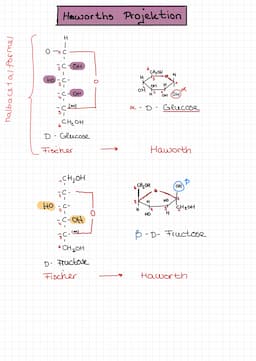 Haworths Projektion
Halbacetalformel
H
O
OH
HO
OH
CH₂OH
D - Glucose
Fischer → Haworth
CH₂OH
OH
OH
α
α - D - Glucose
CH₂OH
HO
OH
CH₂OH
D - Fructose
Fischer → Haworth
CH₂OH
OH
β
HO
CH₂OH
β - D - Fructose